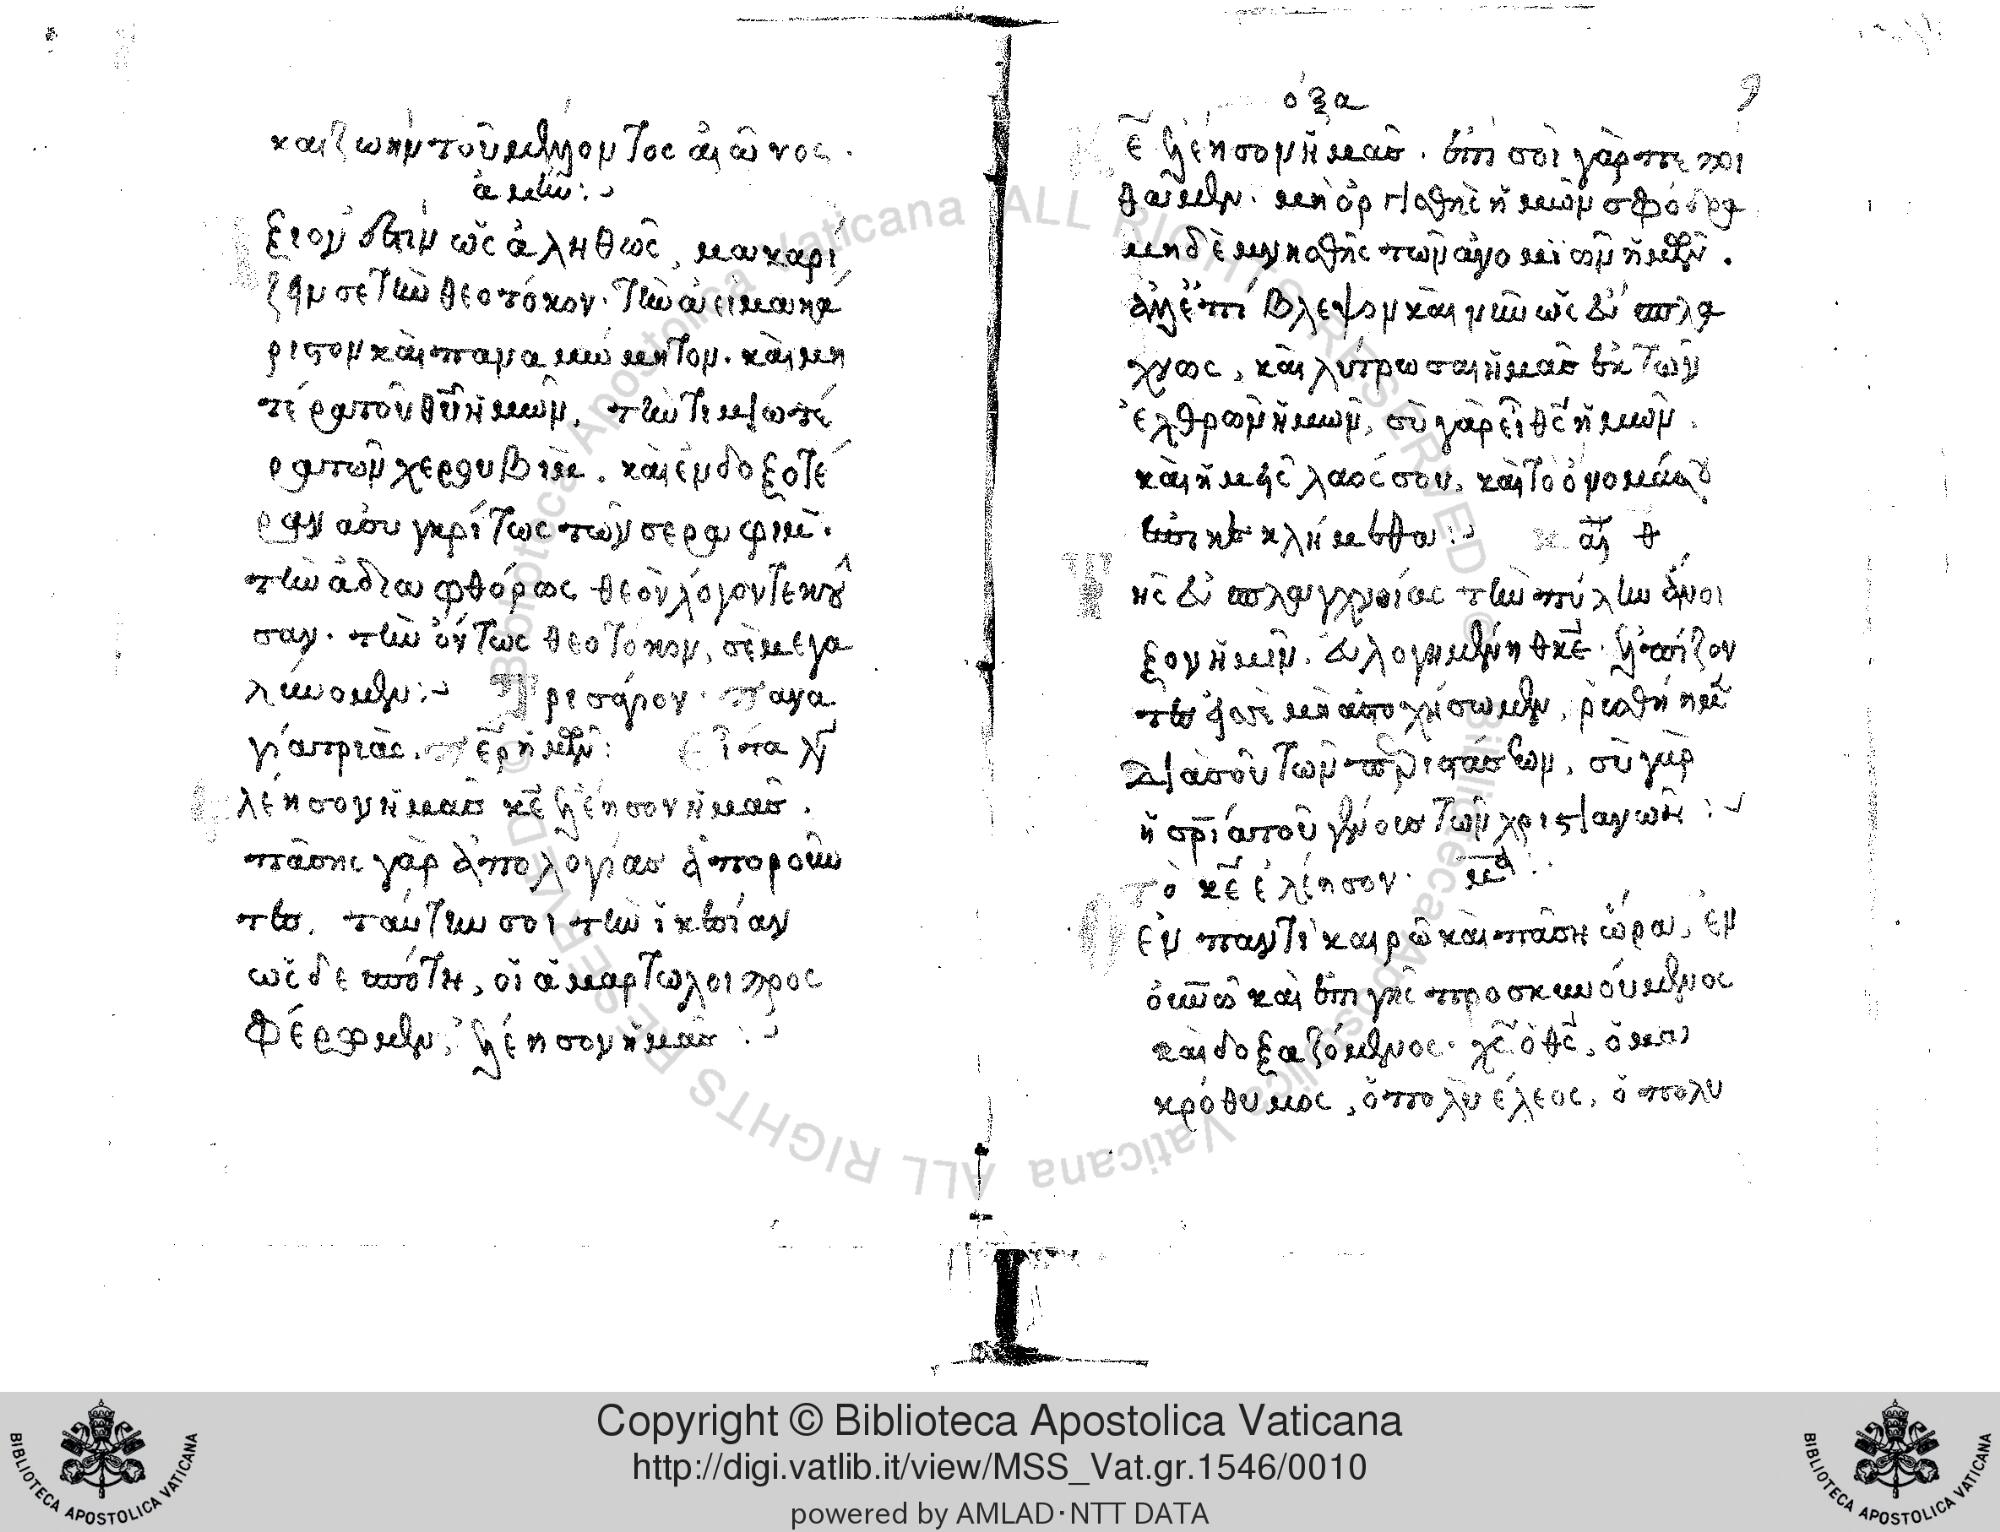 και ζωὴν τοῦ μέλλοντος αἰῶνος.
ἀμήν:
Ἄξιον ἐστὶν ὡς ἀληθῶς, μακαρί
ζειν σε τὴν θεοτόκον. τὴν ἀειμακά
ριστον καὶ παναμώμητον. καὶ μη
τέρα τοῦ θῦ ἡμῶν, τὴν τιμιωτέ
ραν τῶν χερουβὶμ. καὶ ἐνδοξοτέ
ραν ἀσυγκρίτως τῶν σεραφὶμ.
τὴν ἀδιαφθόρως θεὸν λόγον τεκοῦ
σαν. τὴν ὄντως θεοτόκον, σὲ μεγα
λύνομεν: Τρισάγιον. Πανα
γία τριὰς. Περ ἡμῶν: εἶτα
Ἐλέησον ἡμᾶς κε ἐλέησον ἡμᾶς.
πάσης γὰρ ἀπολογίας ἀποροῦν
τες. ταύτην σοι τὴν ἱκεσίαν
ὡς δεσπότη, οἱ ἁμαρτωλοὶ προς
φέρομεν, ἐλέησον ἡμᾶς:
όξα
κε ἐλέησον ἡμᾶς. ἐπὶ σοὶ γὰρ πεποί
θαμεν. μὴ ὀργισθῆς ἡμῶν σφόδρα
μηδὲ μνησθῆς τῶν ἀνομιῶν ἡμῶν.
ἀλλ' ἐπίβλεψον καὶ νῦν ὡς εὔσπλα
χνος, καὶ λύτρωσαι ἡμᾶς ἐκ τῶν
ἐχθρῶν ἡμῶν, σὺ γὰρ εἶ θς ἡμῶν
καὶ ἡμεῖς λαός σου, καὶ τὸ ὄνομά σου
ἐπικεκλήμεθα: Κ αι θ
Τῆς εὐσπλαγχνίας τὴν πύλην ἄνοι
ξον ἡμῖν. εὐλογημένη θκε. ἐλπίζον
τες εἰς σὲ μὴ ἀστοχήσωμεν, ῥυσθείημεν
διὰ σοῦ τῶν περιστάσεων, σὺ γὰρ
ἡ σρία τοῦ γένους τῶν χριστιανῶν:
Τὸ κε ἐλέησον. μ
Ὁ ἐν παντὶ καιρῶ καὶ πάση ὥρα, ἐν
οὐνω καὶ ἐπὶ γῆς προσκυνούμενος
καὶ δοξαζόμενος. χε ὁ θς, ὁ μα
κρόθυμος, ὁ πολυέλεος, ὁ πολυ
Copyright © Biblioteca Apostolica Vaticana
http://digi.vatlib.it/view/MSS_Vat.gr.1546/0010
powered by AMLAD·NTT DATA
BIBLIOTECA APOSTOLICA VATICANA
BIBLIOTECA APOSTOLICA VATICANA